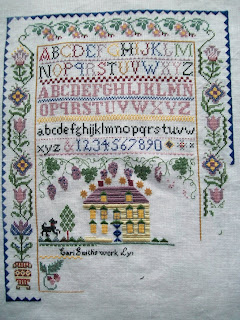 ABCDEFGHIJKLM
NOPQRSTUVWXYZ
ABCDEFGHIJKLMN
OPQRSTUVWXYZ
abcdefghijklmnopqrstuvw
xyz & 1234567890
work